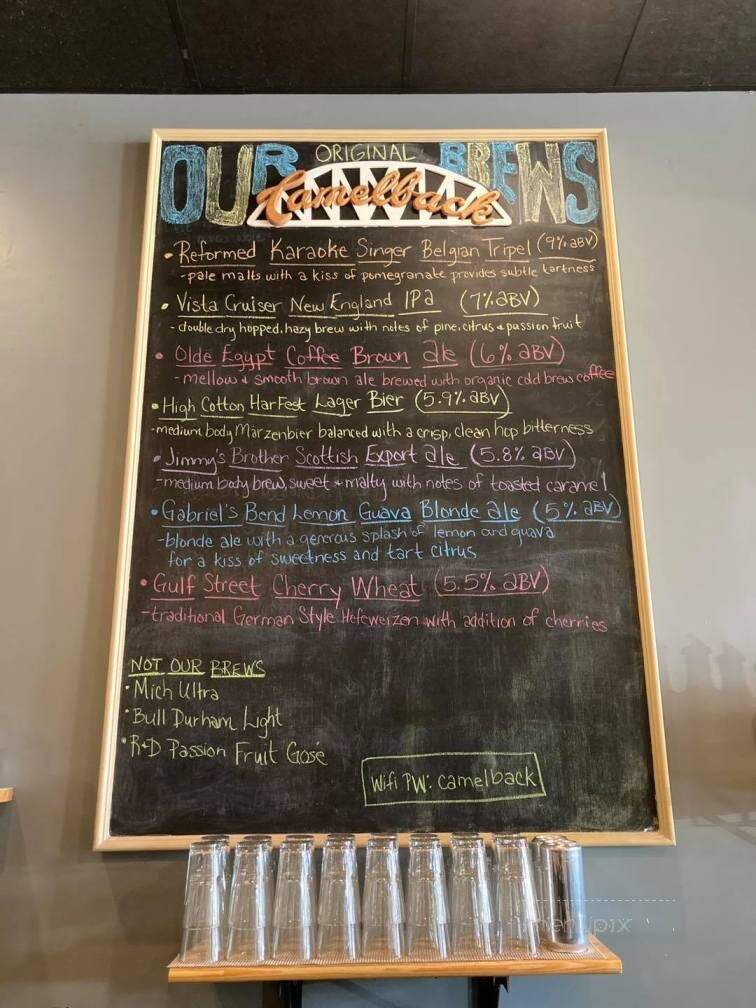 OUR ORIGINAL BREWS
Camelback
• Reformed Karaoke Singer Belgian Tripel (9% ABV)
- pale malts with a kiss of pomegranate provides subtle tartness
• Vista Cruiser New England IPA (7% ABV)
- double dry hopped, hazy brew with notes of pine, citrus & passion fruit
• Olde Egypt Coffee Brown Ale (6% ABV)
- mellow & smooth brown ale brewed with organic cold brew coffee
• High Cotton HarFest Lager Bier (5.9% ABV)
- medium body Märzenbier balanced with a crisp, clean hop bitterness
• Jimmy's Brother Scottish Export Ale (5.8% ABV)
- medium body brew, sweet & malty with notes of toasted caramel
• Gabriel's Bend Lemon Guava Blonde Ale (5% ABV)
- blonde ale with a generous splash of lemon and guava
for a kiss of sweetness and tart citrus
• Gulf Street Cherry Wheat (5.5% ABV)
- traditional German Style Hefeweizen with addition of cherries
NOT OUR BREWS
• Mich Ultra
• Bull Durham Light
• R&D Passion Fruit Gosé
Wifi PW: camelback